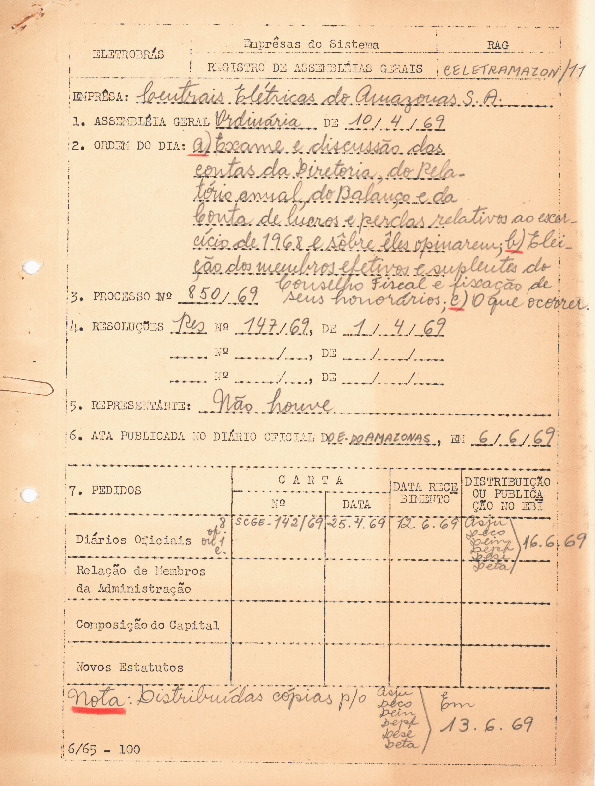 ELETROBRÁS
Emprêsas do Sistema
REGISTRO DE ASSEMBLÉIAS GERAIS
RAG
CELETRAMAZON/11
EMPRÊSA: Centrais Elétricas do Amazonas S.A.
1. ASSEMBLÉIA GERAL Ordinária DE 10/4/69
2. ORDEM DO DIA: a) Exame e discussão das
contas da Diretoria, do Rela-
tório anual, do Balanço e da
Conta de lucros e perdas relativos ao exer-
cício de 1968 e sôbre êles opinarem; b) Elei-
ção dos membros efetivos e suplentes do
Conselho Fiscal e fixação de
3. PROCESSO Nº 850/69 seus honorários; c) O que ocorrer.
4. RESOLUÇÕES Res Nº 147/69, DE 1/4/69
Nº / , DE / /
Nº / , DE / /
5. REPRESENTANTE: Não houve
6. ATA PUBLICADA NO DIÁRIO OFICIAL DO E. DO AMAZONAS, EM 6/6/69
7. PEDIDOS
CARTA
Nº
DATA
DATA RECE
BIMENTO
DISTRIBUIÇÃO
OU PUBLICA
ÇÃO NO EBI
Diários Oficiais 8
SCGE-142/69
25.4.69
12.6.69
Asju
Deco
Dein
Depf
Dese
Deta
16.6.69
Relação de Membros
da Administração
Composição do Capital
Novos Estatutos
Nota: Distribuídas cópias p/o
Asju
Deco
Dein
Depf
Dese
Deta
Em
13.6.69
6/65 - 100